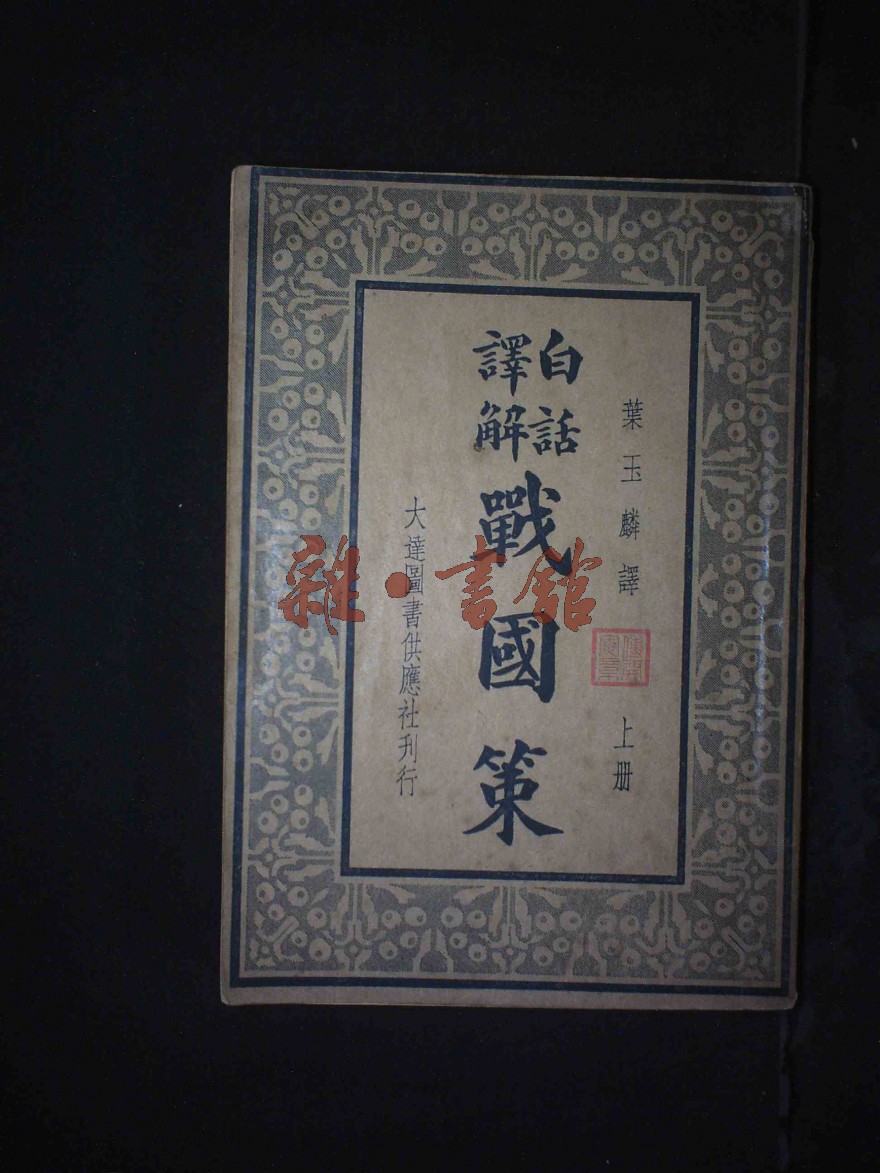 葉玉麟譯
上册
白話
譯解
戰國策
大達圖書供應社刋行
雜·書館